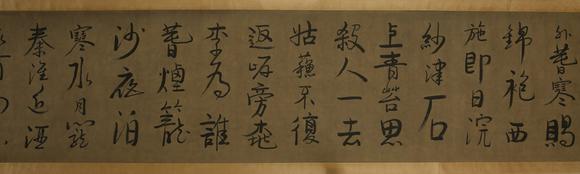 外春寒賜
錦袍西
施即日浣
紗津石
上青苔思
殺人一去
姑蘇不復
返岸旁桃
李為誰
春煙籠
沙夜泊
寒水月籠
秦淮近酒